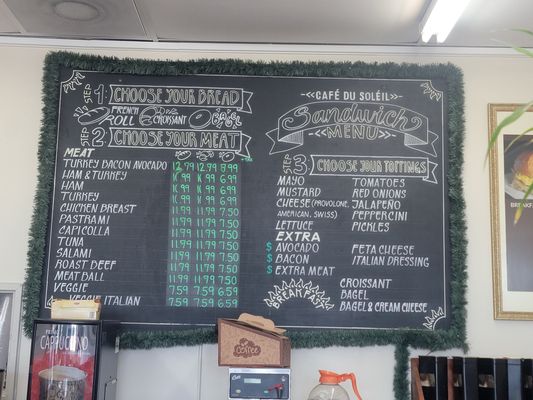 STEP 1 CHOOSE YOUR BREAD
FRENCH ROLL CROISSANT BAGEL
STEP 2 CHOOSE YOUR MEAT
MEAT
TURKEY BACON AVOCADO 12.79 12.79 8.79
HAM & TURKEY 11.99 11.99 6.99
HAM 11.99 11.99 6.99
TURKEY 11.99 11.99 6.99
CHICKEN BREAST 11.79 11.79 7.50
PASTRAMI 11.79 11.79 7.50
CAPICOLLA 11.79 11.79 7.50
TUNA 11.79 11.79 7.50
SALAMI 11.79 11.79 7.50
ROAST BEEF 11.79 11.79 7.50
MEAT BALL 11.79 11.79 7.50
VEGGIE 7.59 7.59 6.59
VEGGIE ITALIAN 7.59 7.59 6.59
CAFÉ DU SOLÉIL
Sandwich
MENU
STEP 3 CHOOSE YOUR TOPPINGS
MAYO
MUSTARD
CHEESE (PROVOLONE,
AMERICAN, SWISS)
LETTUCE
TOMATOES
RED ONIONS
JALAPEÑO
PEPPERCINI
PICKLES
EXTRA
$ AVOCADO
$ BACON
$ EXTRA MEAT
FETA CHEESE
ITALIAN DRESSING
BREAKFAST
CROISSANT
BAGEL
BAGEL & CREAM CHEESE
CAPPUCCINO
Coffee